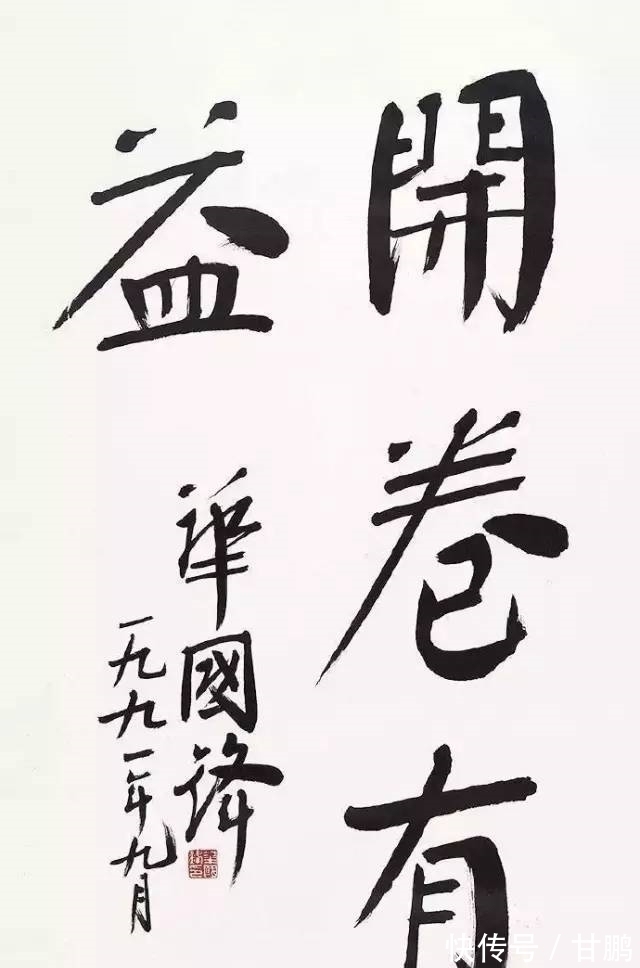 開卷有
益
華國鋒
一九九一年九月
快传号/甘鹏